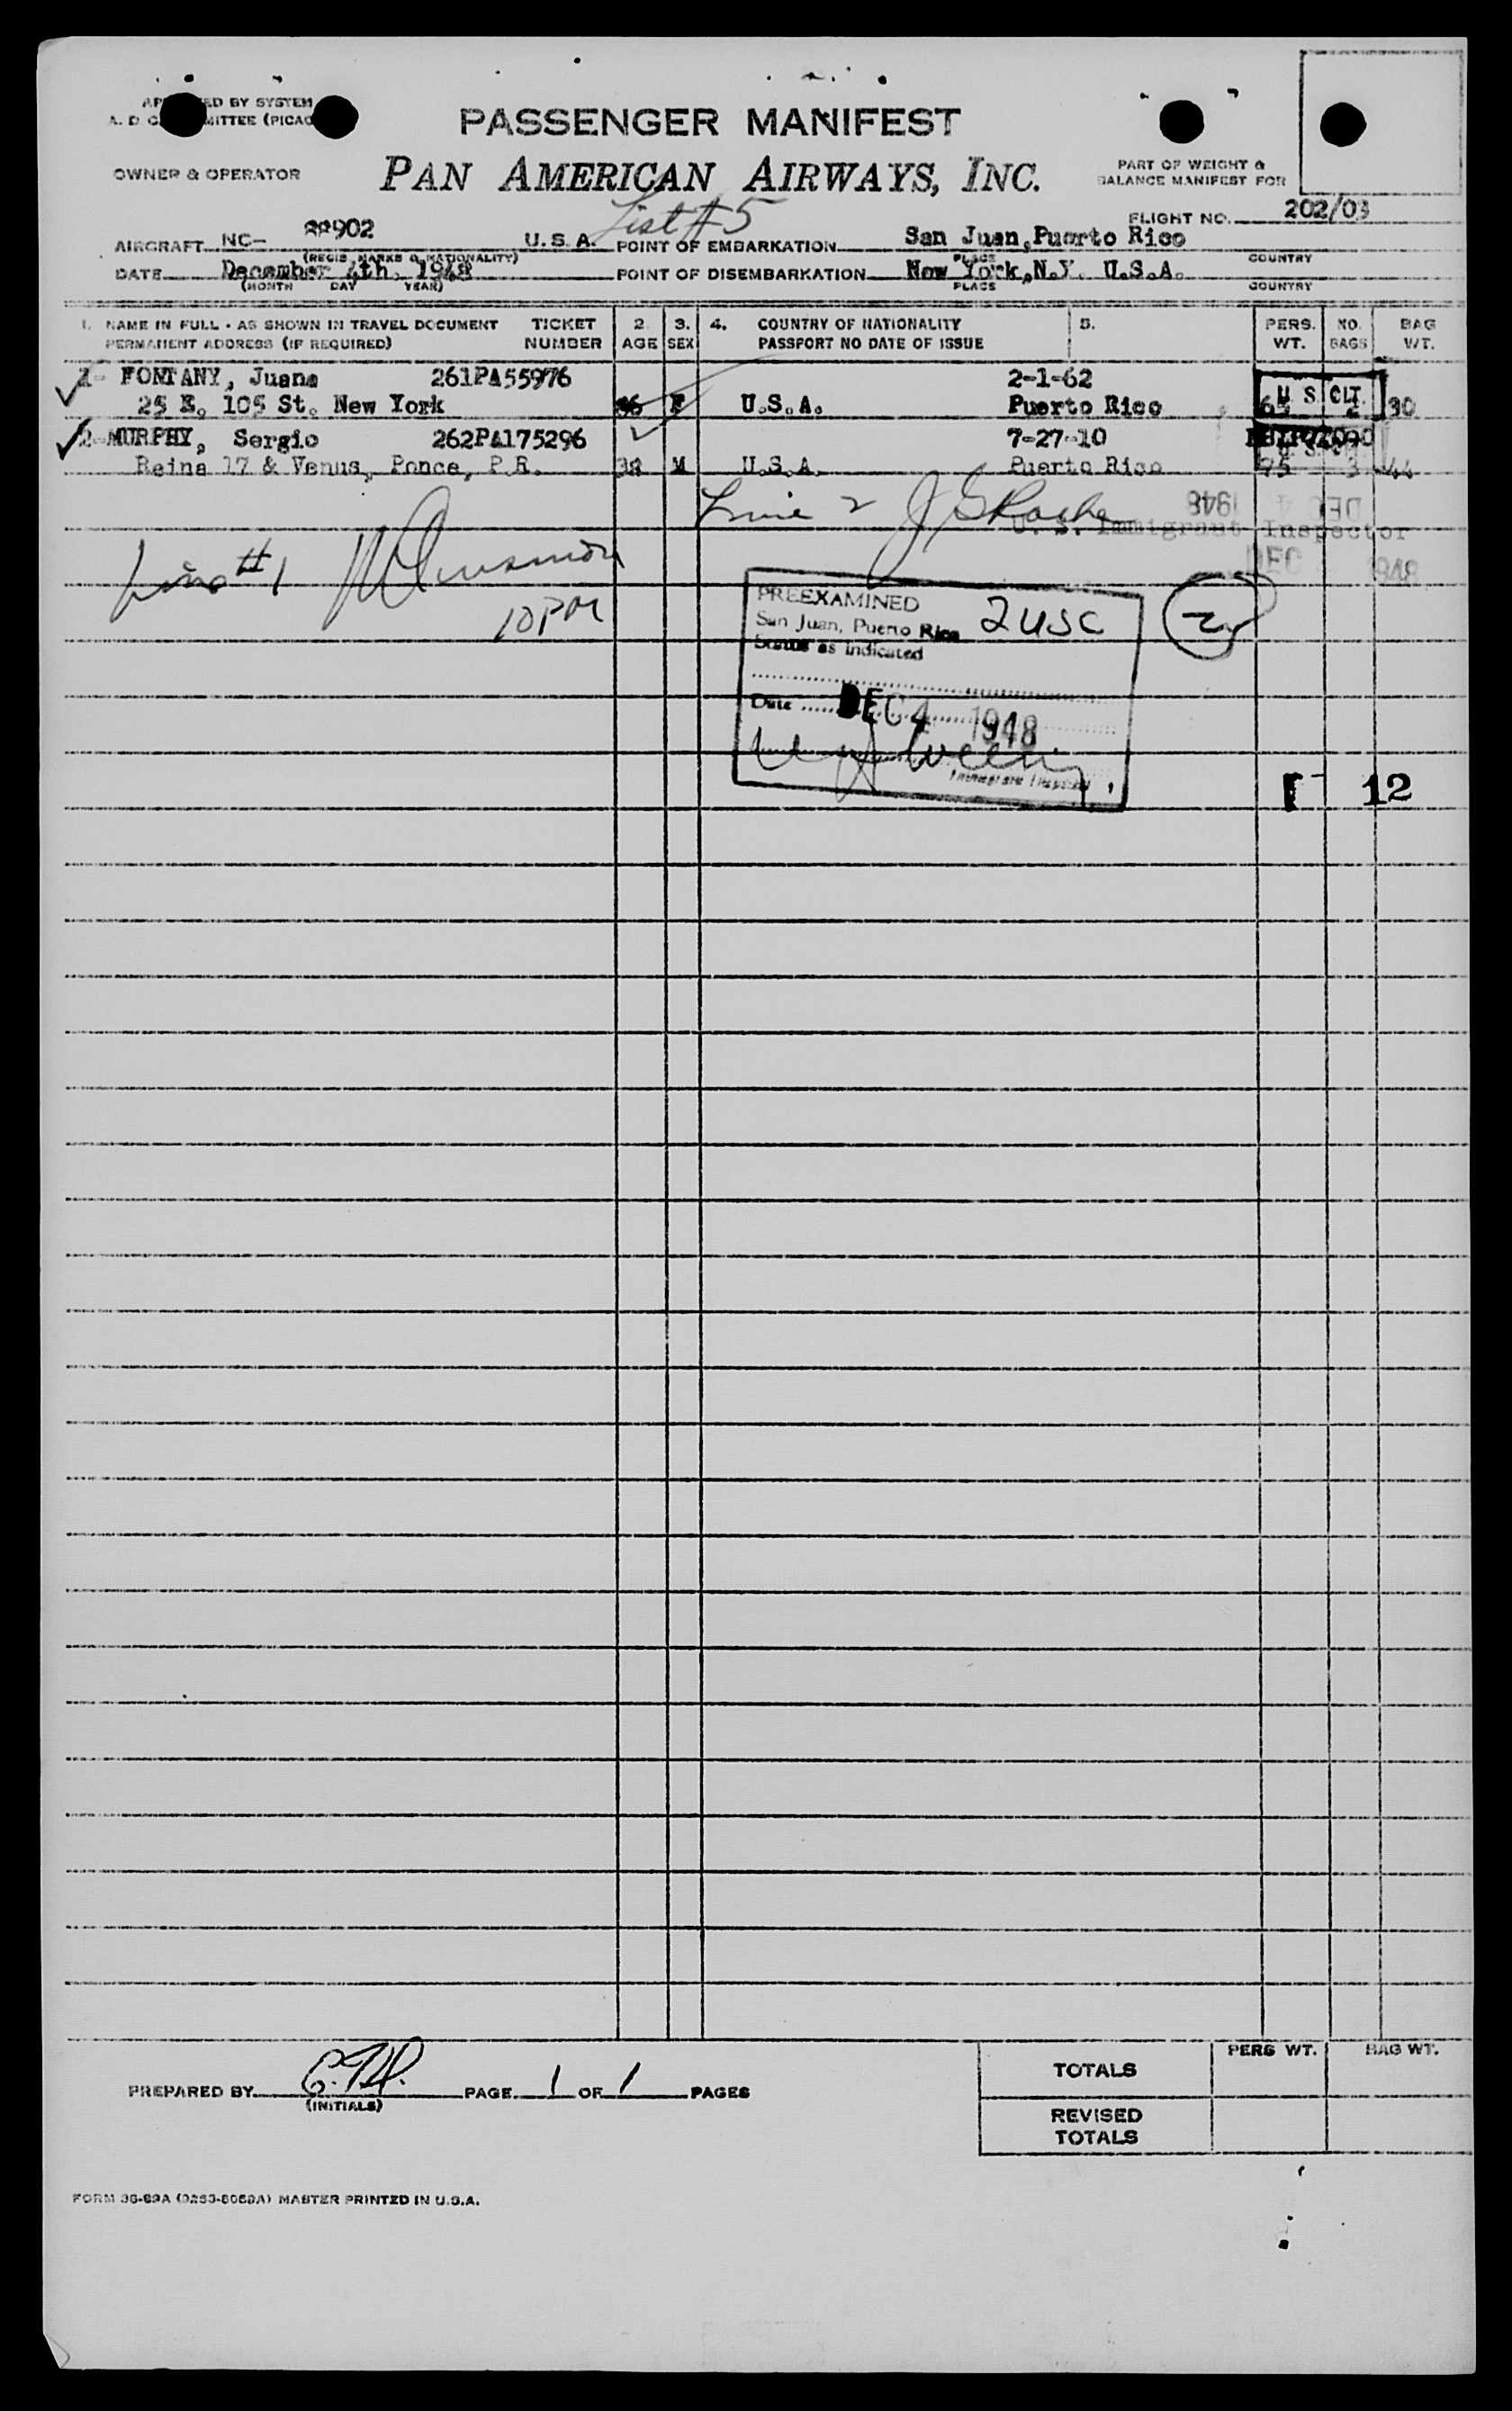 PASSENGER MANIFEST
OWNER & OPERATOR
PAN AMERICAN AIRWAYS, INC.
PART OF WEIGHT &
BALANCE MANIFEST FOR
List #5
FLIGHT NO. 202/03
AIRCRAFT NC- 88902 U. S. A. POINT OF EMBARKATION San Juan, Puerto Rico
(REGIS. MARKS & NATIONALITY) PLACE COUNTRY
DATE December 4th, 1948 POINT OF DISEMBARKATION New York, N.Y. U.S.A.
(MONTH DAY YEAR) PLACE COUNTRY
1. NAME IN FULL - AS SHOWN IN TRAVEL DOCUMENT TICKET 2. 3. 4. COUNTRY OF NATIONALITY 5. PERS. NO. BAG
PERMANENT ADDRESS (IF REQUIRED) NUMBER AGE SEX PASSPORT NO DATE OF ISSUE WT. BAGS WT.
1- FONTANY, Juana 261PA55976 2-1-62
25 E. 105 St. New York 86 F U.S.A. Puerto Rico U S CLT. 30
2- MURPHY, Sergio 262PA175296 7-27-10
Reina 17 & Venus, Ponce, P.R. 38 M U.S.A. Puerto Rico 75 3 44
Line 2
DEC 4 1948
U. S. Immigrant Inspector
DEC 1948
Line #1
10 PM
PREEXAMINED
San Juan, Puerto Rico 2 USC 2
Status as indicated
Date DEC 4 1948
Immigrant Inspector
12
PREPARED BY (INITIALS) PAGE 1 OF 1 PAGES
PERS WT. BAG WT.
TOTALS
REVISED
TOTALS
FORM 36-69A (0253-8069A) MASTER PRINTED IN U.S.A.